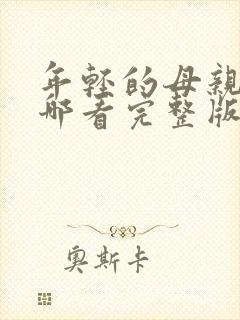 年轻的母亲
哪看完整版
奥斯卡